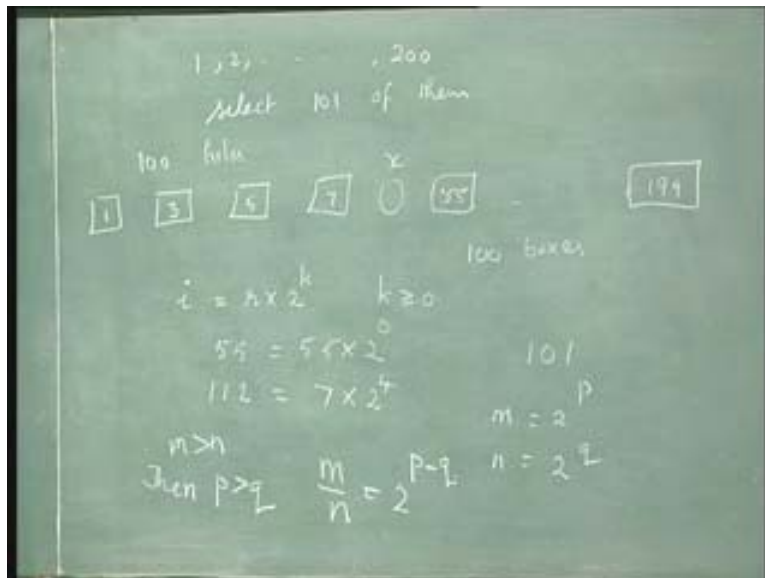 1, 2, . . . , 200
select 101 of them
100 holes
x
1 3 5 7 55 . 199
100 boxes
i = r x 2^k k ≥ 0
55 = 55 x 2^0 101
112 = 7 x 2^4
m = 2^p
m > n
n = 2^q
Then p > q m/n = 2^p-q